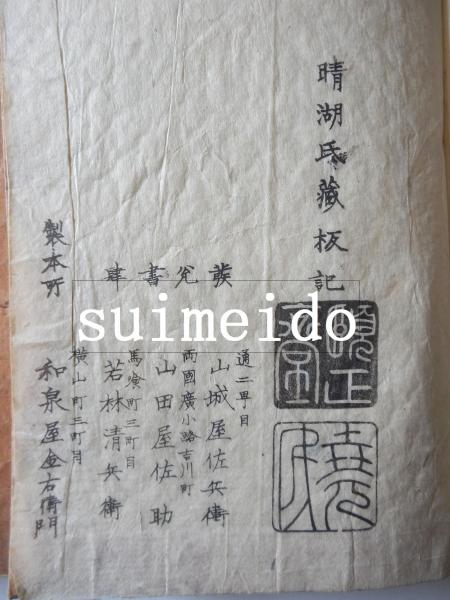 晴湖氏藏板記
發兌書肆
通二丁目
山城屋佐兵衛
両國廣小路吉川町
山田屋佐助
馬喰町三町目
若林清兵衛
製本所
横山町三町目
和泉屋金右衛門
suimeido